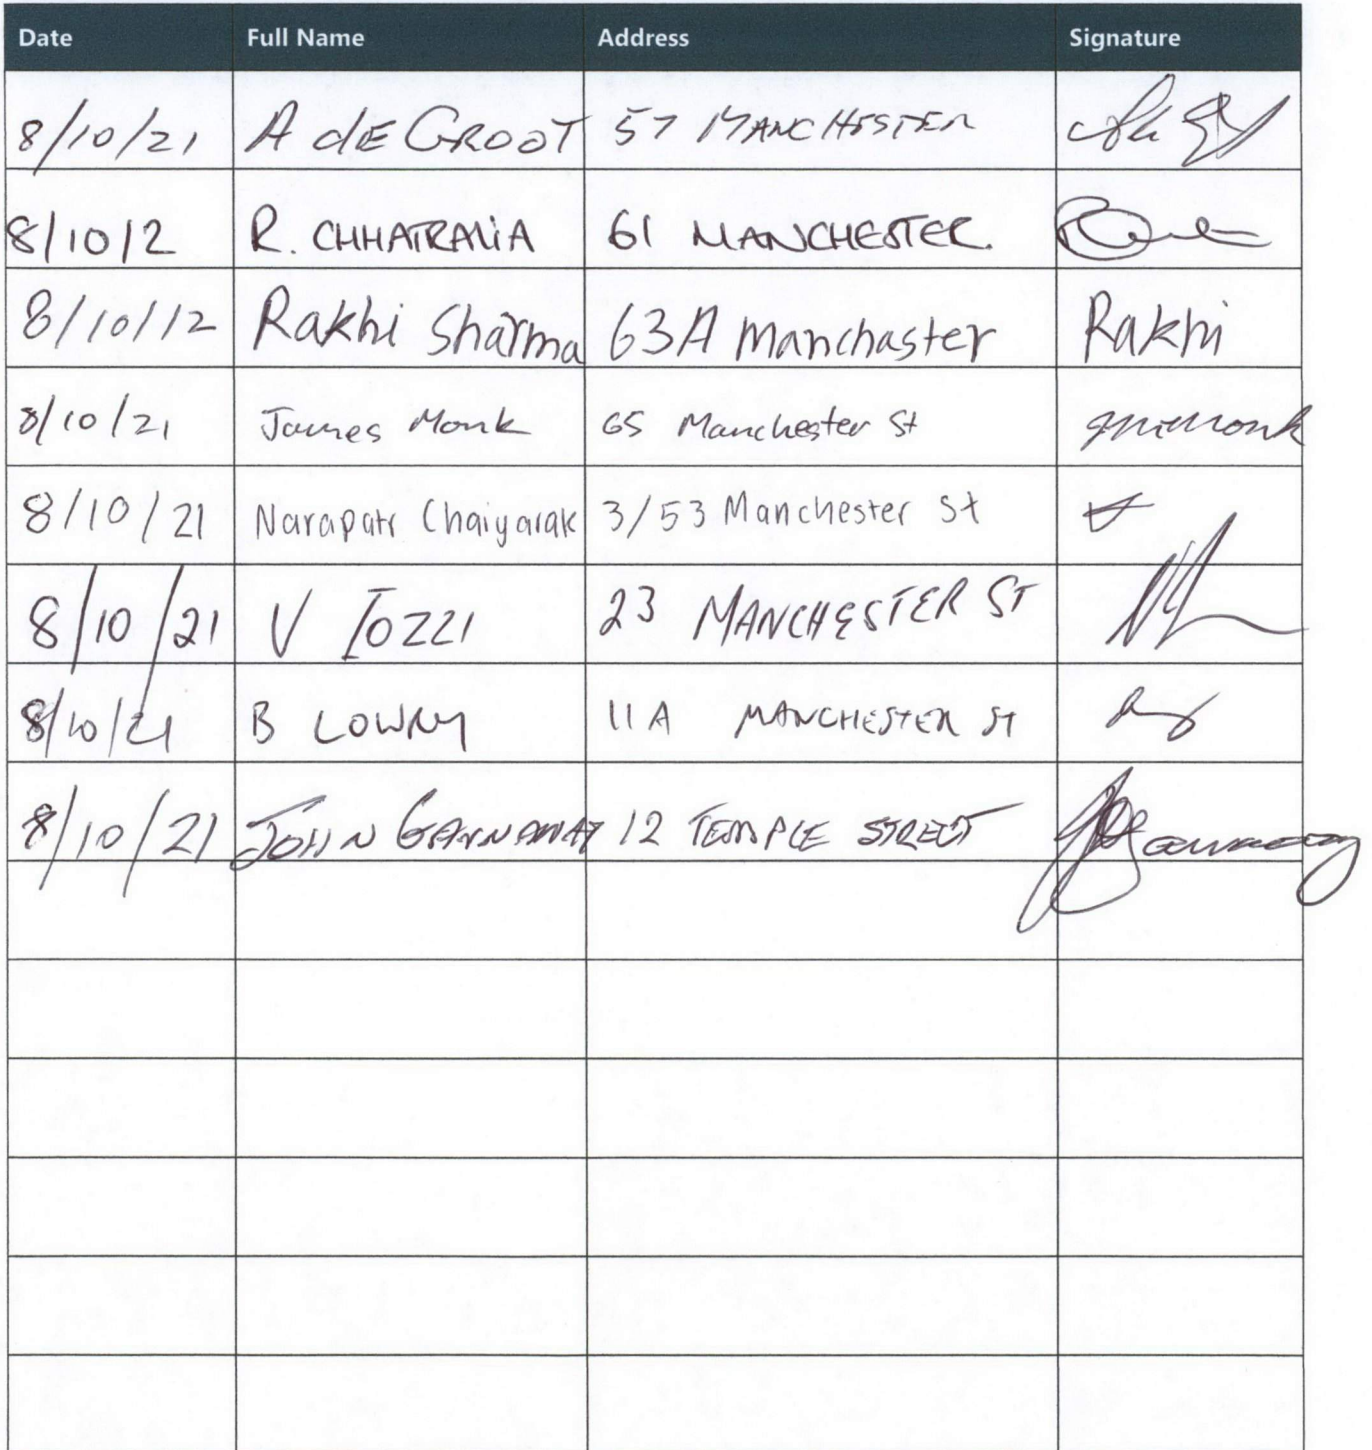 Date Full Name Address Signature
8/10/21 A dE GROOT 57 MANCHESTER
8/10/2 R. CHHATRALIA 61 MANCHESTER.
8/10/12 Rakhi Sharma 63A Manchaster Rakhi
8/10/21 James Monk 65 Manchester St
8/10/21 Narapatr Chaiyarak 3/53 Manchester St
8/10/21 V IOZZI 23 MANCHESTER ST
8/10/21 B LOWRY 11A MANCHESTER ST
8/10/21 JOHN GANNAWAY 12 TEMPLE STREET